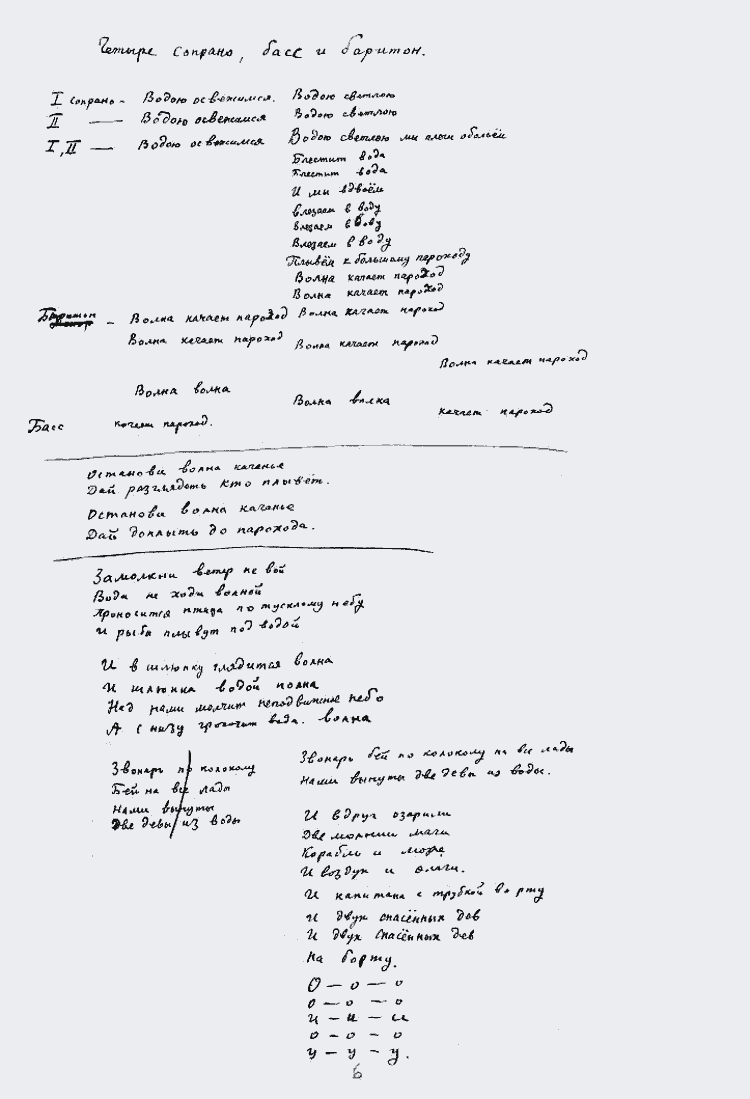 Четыре сопрано, басс и баритон.
I сопрано – Водою освежимся. Водою светлою
II — Водою освежимся Водою светлою
I, II — Водою освежимся Водою светлою мы плечи обольём
Блестит вода
Блестит вода
И мы вдвоём
Влезаем в воду
Влезаем в воду
Влезаем в воду
Плывём к большому пароходу
Волна качает пароход
Волна качает пароход
Баритон – Волна качает пароход Волна качает пароход
Волна качает пароход Волна качает пароход
Волна качает пароход
Волна волна
Волна волна
качает пароход
Басс качает пароход.
Останови волна качанье
Дай разглядеть кто плывёт.
Останови волна качанье
Дай доплыть до парохода.
Замолкни ветер не вой
Вода не ходи волной
Проносится птица по тусклому небу
И рыбы плывут под водой
И в шлюпку глядится волна
И шлюпка водой полна
Над нами молчит неподвижное небо
А с низу грохочит вода. волна
Звонарь по колоколу
Бей на все лады
Нами вынуты
Две девы из воды
Звонарь бей по колоколу на все лады
Нами вынуты две девы из воды.
И вдруг озарили
Две молнии
Корабль и море
И воздух и влаги.
И капитана с трубкой во рту
И двух спасённых дев
И двух спасённых дев
на борту.
О – о – о
о – о – о
и – и – и
о – о – о
у – у – у.
6